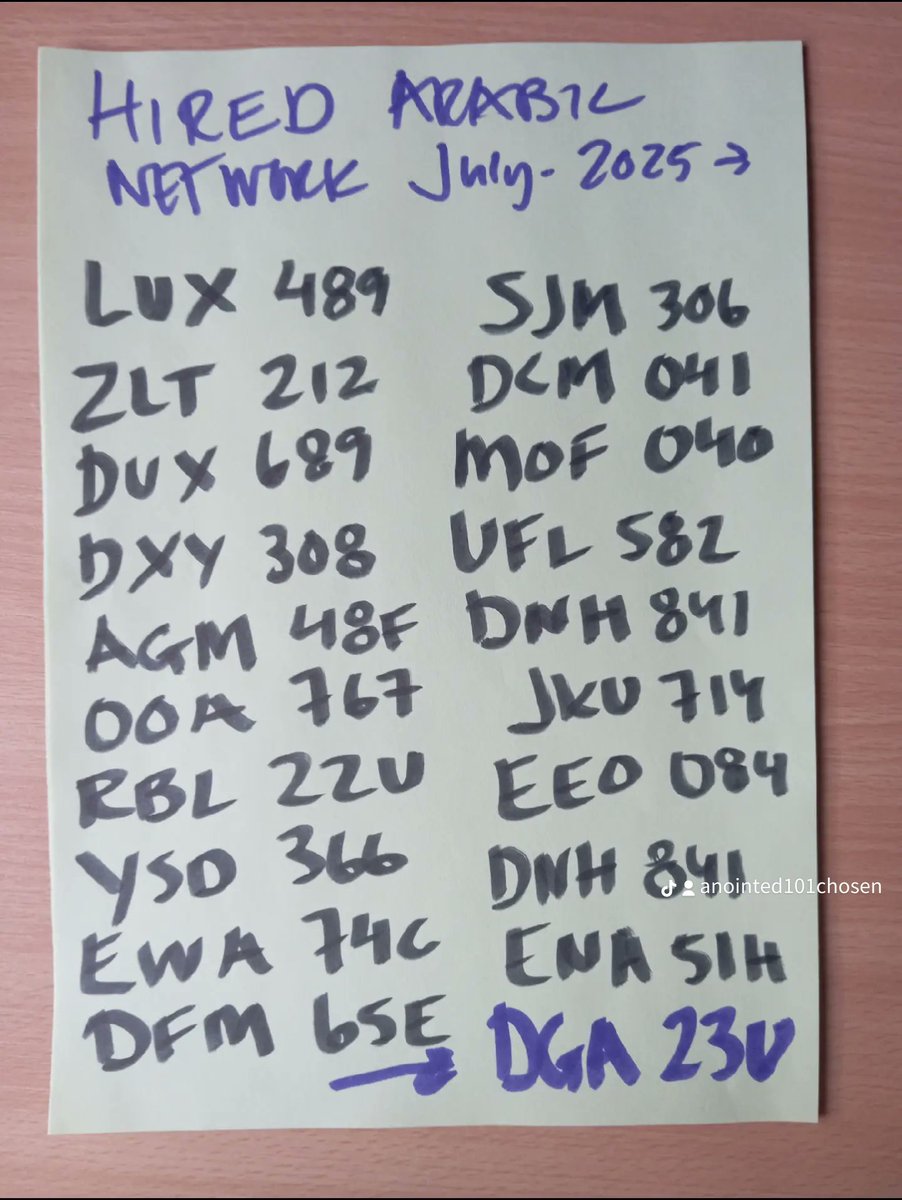 HIRED ARABIC
NETWORK July-2025 →
LUX 489
ZLT 212
DUX 689
DXY 308
AGM 48F
OOA 767
RBL 22U
YSD 366
EWA 74C
DFM 65E
SJM 306
DCM 041
MOF 040
UFL 582
DNH 841
JKU 714
EEO 084
DNH 841
ENA 51H
→ DGA 23U
anointed101chosen